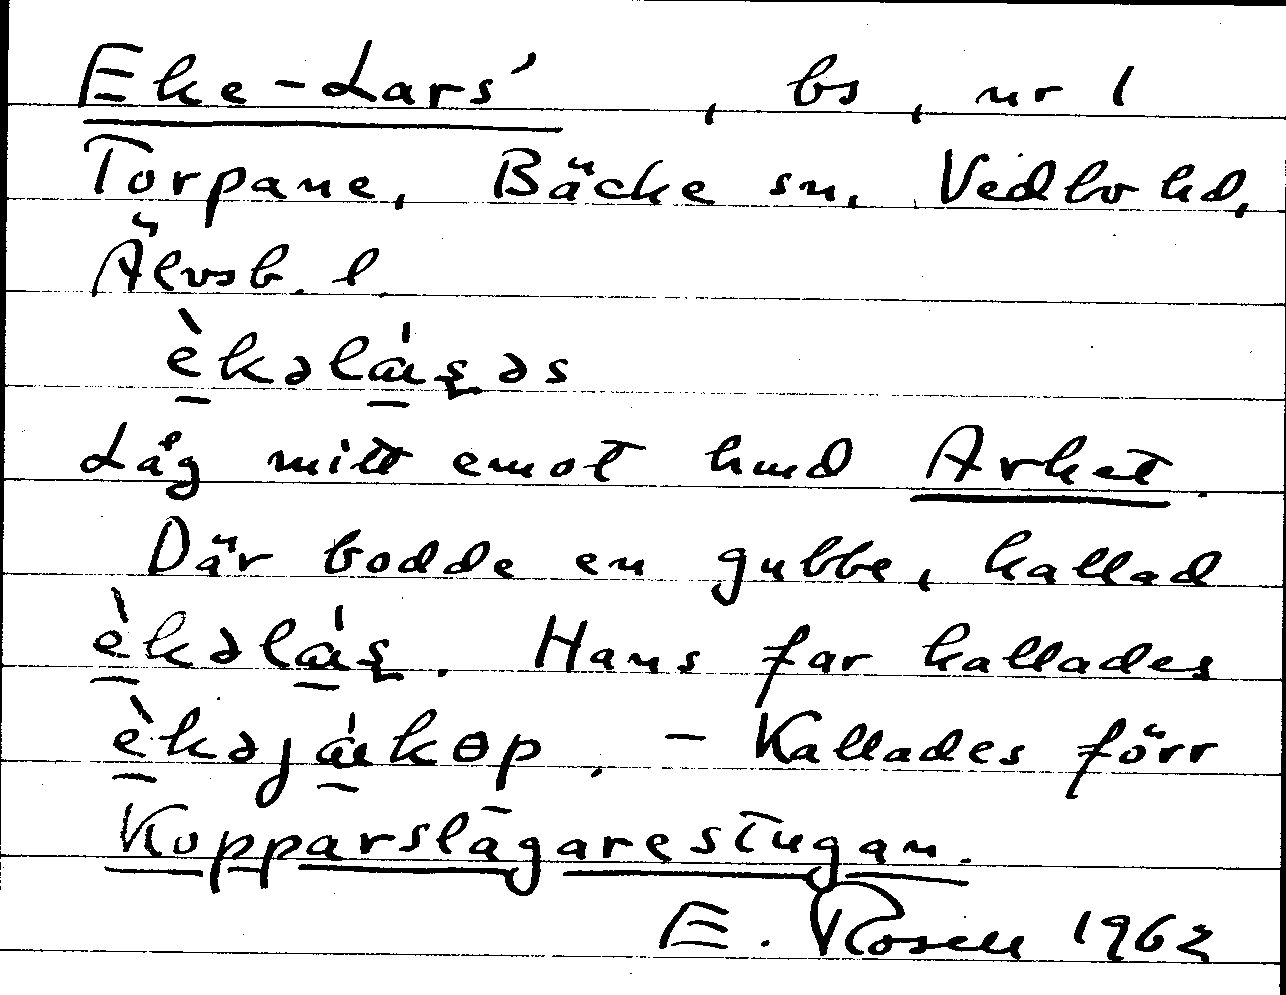 Eke-Lars' , bs , nr 1
Torpane, Bäcke sn, Vedbo hd,
Älvsb. l.
èkəláʂəs
Låg mitt emot hmd Arket.
Där bodde en gubbe, kallad
èkəláʂ. Hans far kallades
èkəjákɵp. – Kallades förr
Kopparslāgarestugan.
E. Rosell 1962